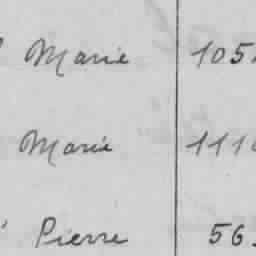 Marie 105
Marie 111
Pierre 56